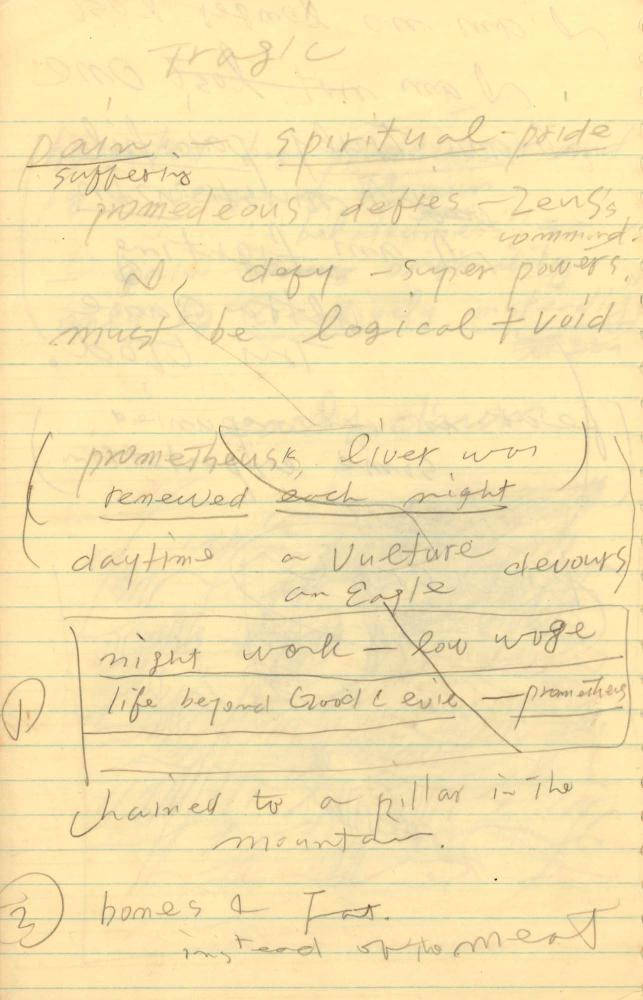 Tragic
pain — spiritual-pride
suffering
promedeous defies - Zeus's
command.
defy - super powers.
must be logical + void
prometheus liver was
renewed each night
daytime a Vulture devours
an Eagle
night work — low wage
1.
life beyond Good & evil — prometheus
chained to a pillar in the
mountain.
2
bones & Fat.
instead of the meat